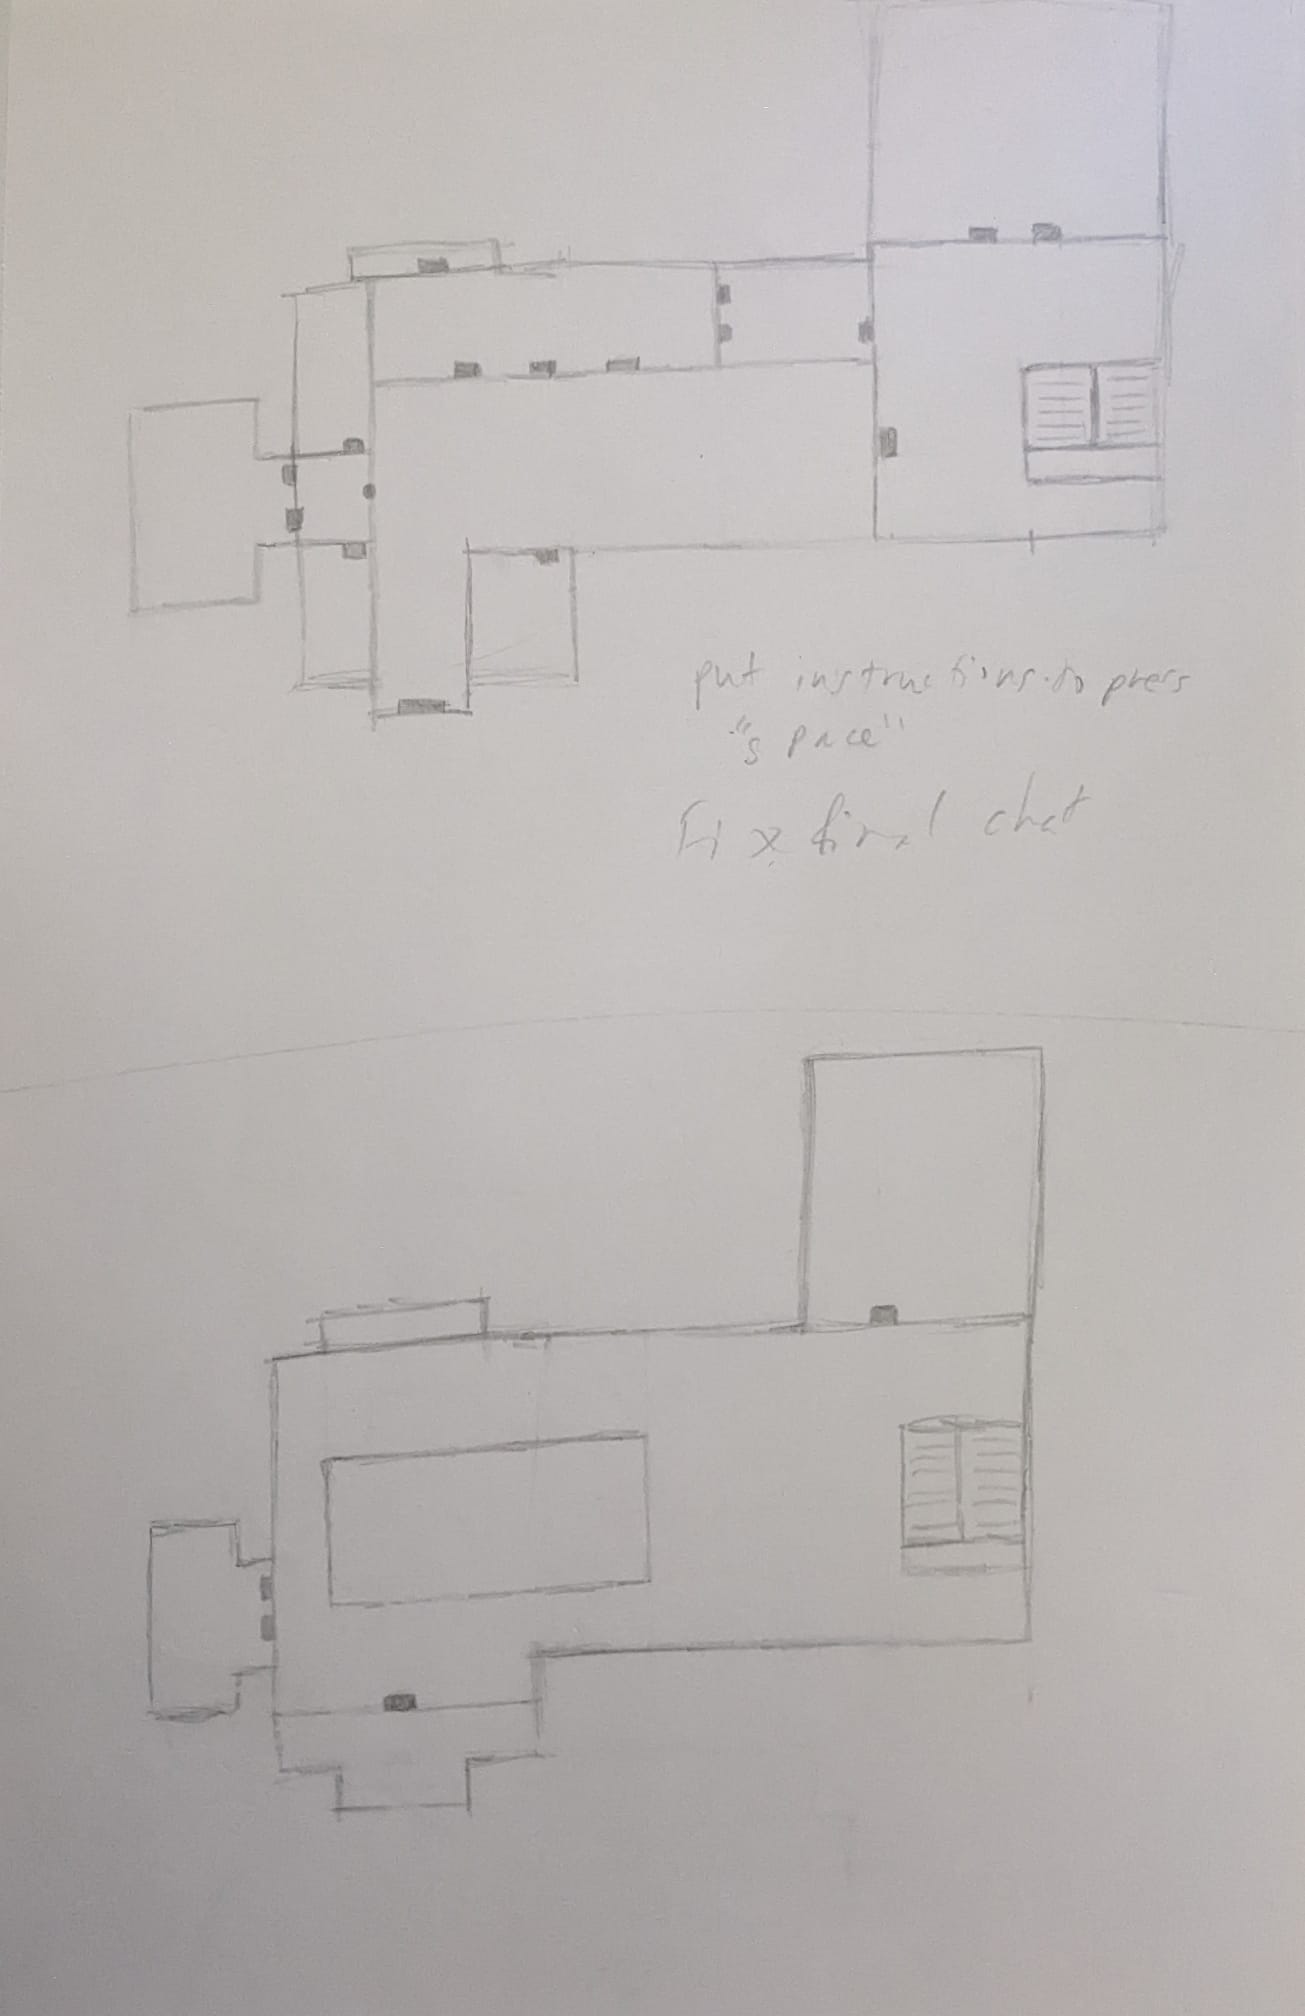 put instructions to press
"space"
Fix final chat